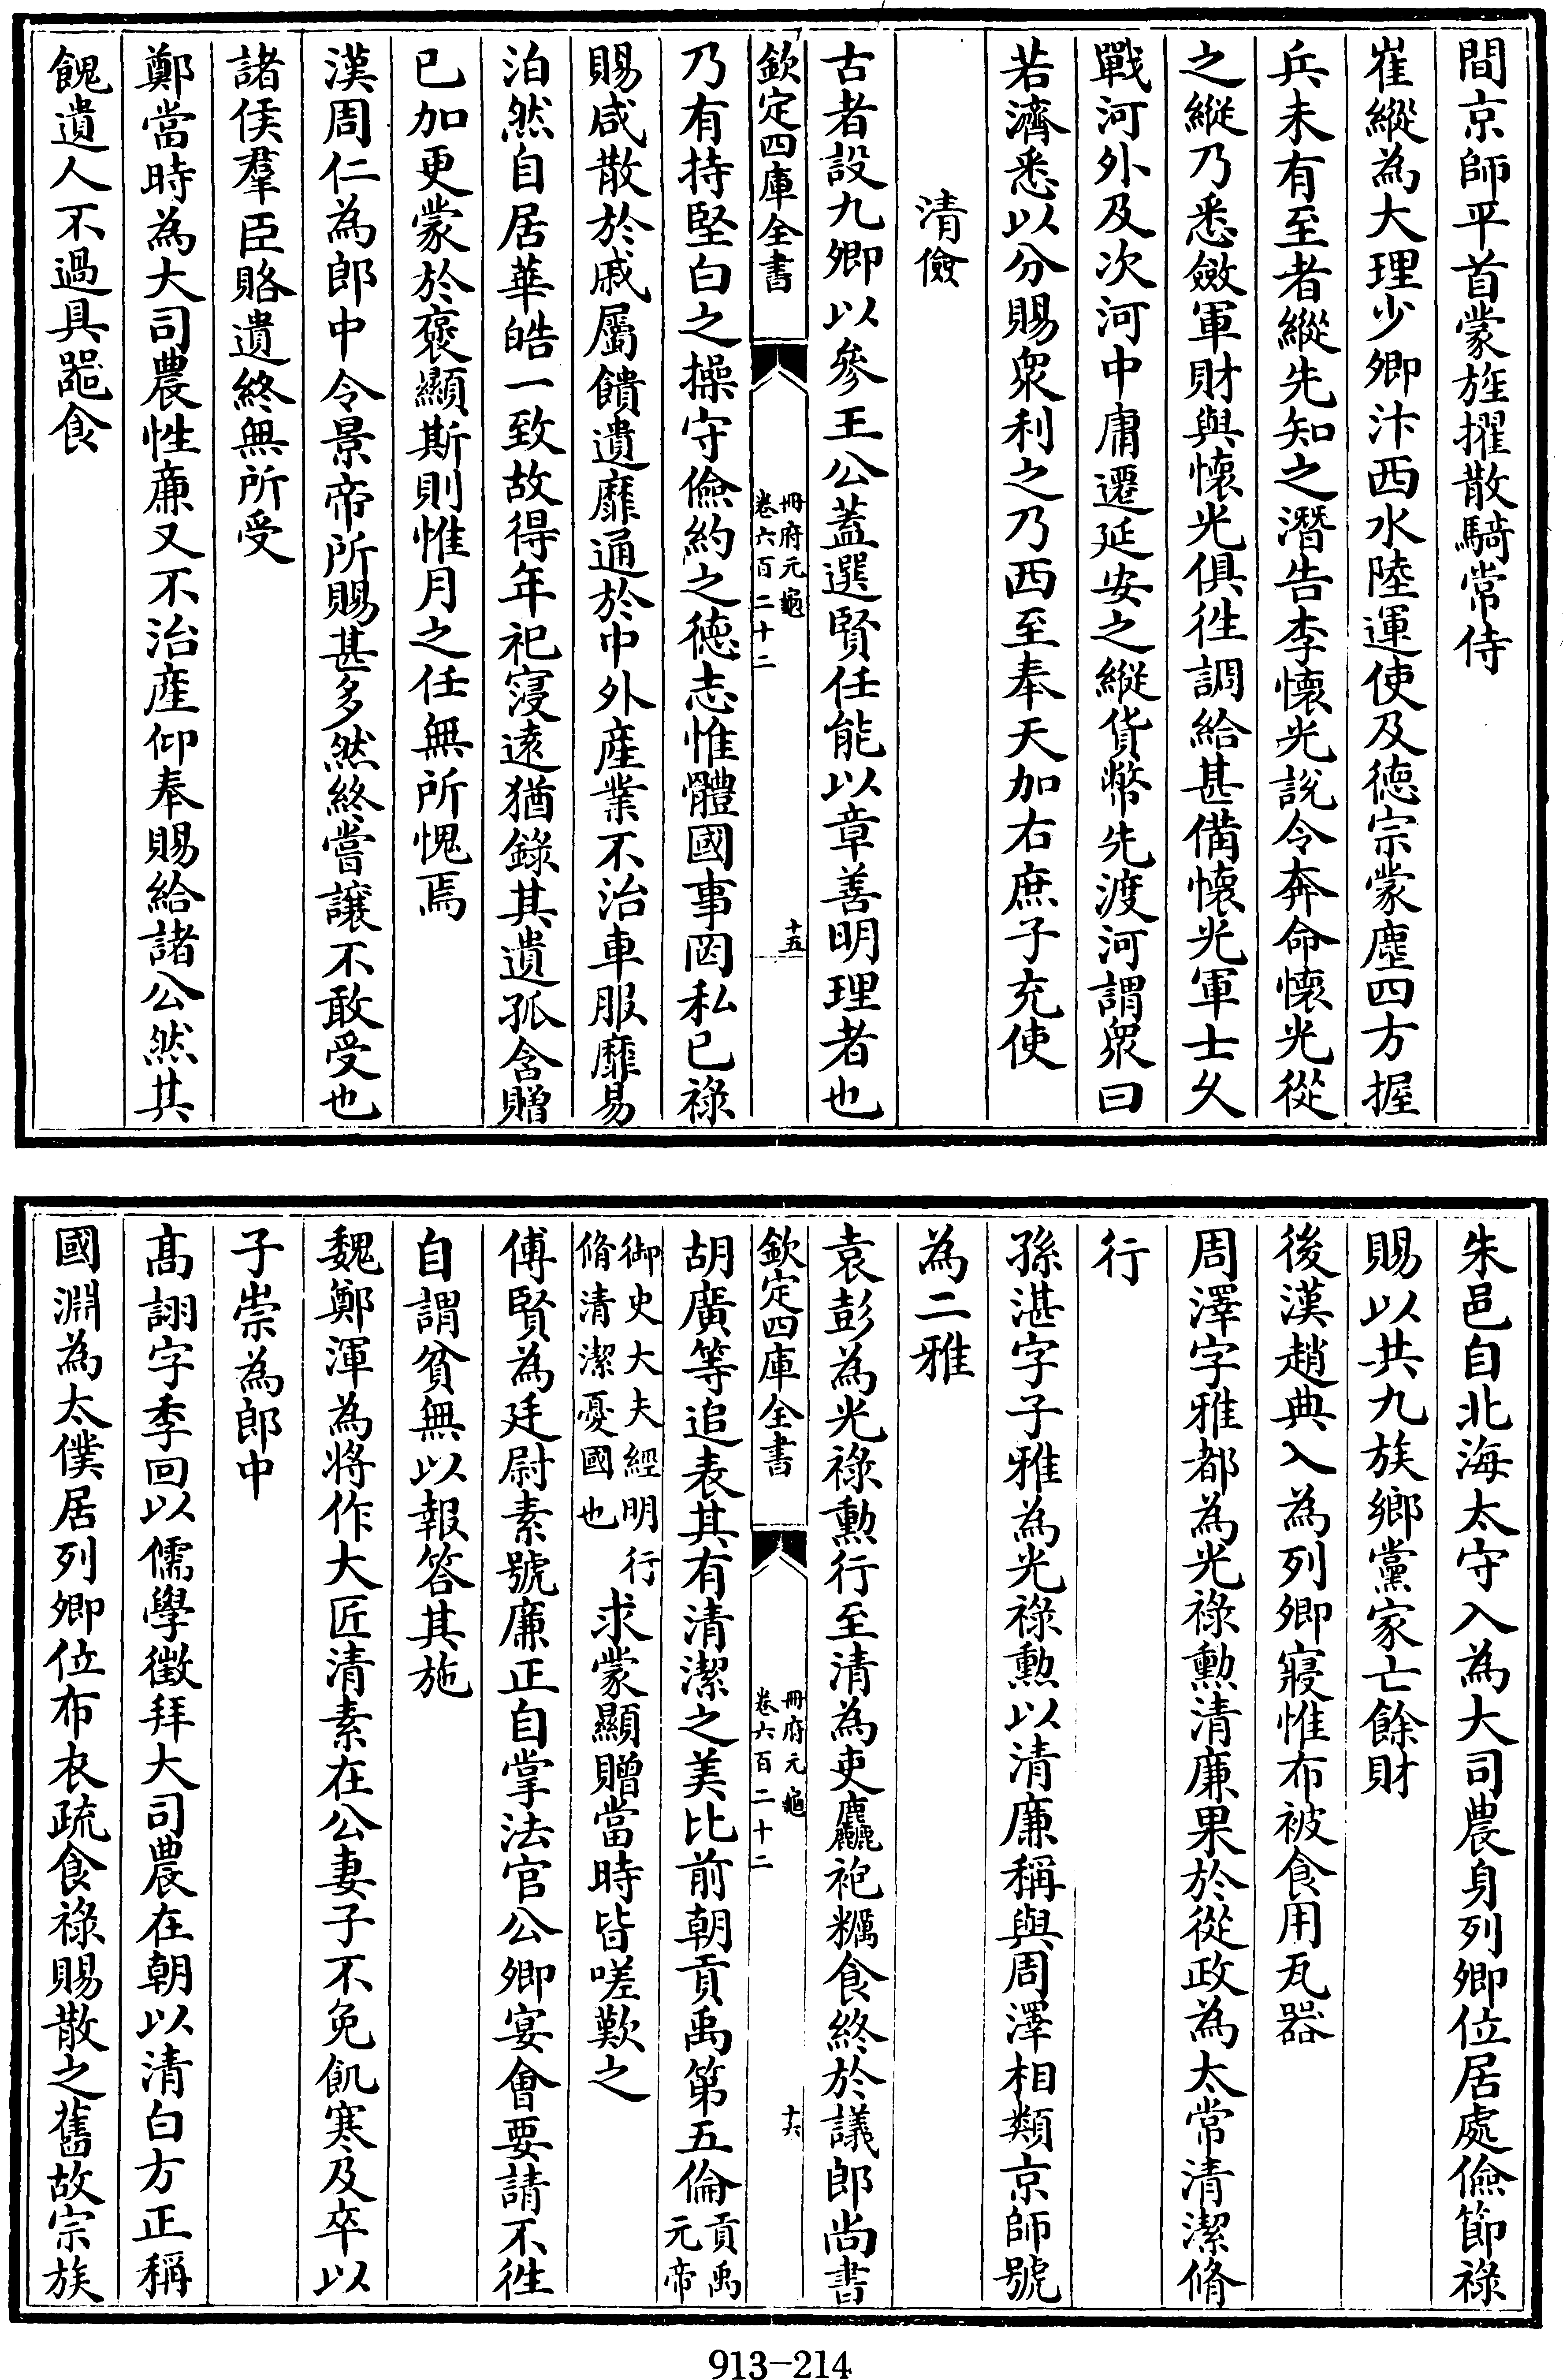 間京師平首蒙旌擢散騎常侍
崔縱為大理少卿汴西水陸運使及徳宗蒙塵四方握
兵未有至者縱先知之潛告李懐光說令奔命懐光從
之縱乃悉斂軍財與懐光俱徃調給甚備懐光軍士久
戰河外及次河中庸遷延安之縱貨幣先渡河謂衆曰
若濟悉以分賜衆利之乃西至奉天加右庶子充使
清儉
古者設九卿以參王公蓋選賢任能以章善明理者也
欽定四庫全書
冊府元龜
卷六百二十二
十五
乃有持堅白之操守儉約之徳志惟體國事罔私已祿
賜咸散於戚屬饋遺靡通於中外産業不治車服靡易
泊然自居華皓一致故得年祀寖逺猶錄其遺孤含贈
已加更蒙於襃顯斯則惟月之任無所愧焉
漢周仁為郎中令景帝所賜甚多然終嘗讓不敢受也
諸侯羣臣賂遺終無所受
鄭當時為大司農性亷又不治産仰奉賜給諸公然其
餽遺人不過具器食
朱邑自北海太守入為大司農身列卿位居處儉節祿
賜以共九族鄉黨家亡餘財
後漢趙典入為列卿寢惟布被食用瓦器
周澤字雅都為光祿勲清廉果於從政為太常清潔脩
行
孫湛字子雅為光祿勲以清廉稱與周澤相類京師號
為二雅
袁彭為光祿勲行至清為吏麤袍糲食終於議郎尚書
欽定四庫全書
冊府元龜
卷六百二十二
十六
胡廣等追表其有清潔之美比前朝貢禹第五倫貢禹元帝
御史大夫經明行脩清潔憂國也求蒙顯贈當時皆嗟歎之
傅賢為廷尉素號廉正自掌法官公卿宴會要請不徃
自謂貧無以報答其施
魏鄭渾為將作大匠清素在公妻子不免飢寒及卒以
子崇為郎中
髙詡字季回以儒學徵拜大司農在朝以清白方正稱
國淵為太僕居列卿位布衣疏食祿賜散之舊故宗族
913-214